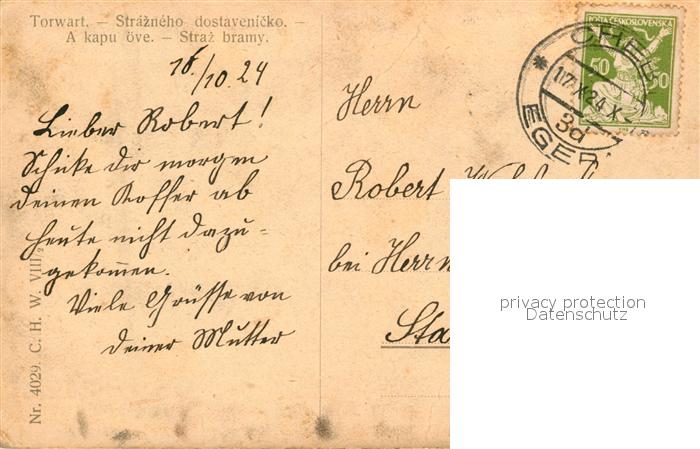 Torwart. — Strážného dostaveníčko. —
A kapu öve. — Straž bramy.
16./10.24
Lieber Robert!
Schicke dir morgen
deinen Koffer ab
heute nicht dazu-
gekommen.
Viele Grüsse von
deiner Mutter
Nr. 4029. C. H. W. VIII/2
Herrn
Robert
bei Herrn
Sta
POŠTA ČESKOSLOVENSKÁ
50 50
CHEB
17.X.24.X-
3d
EGER
privacy protection
Datenschutz